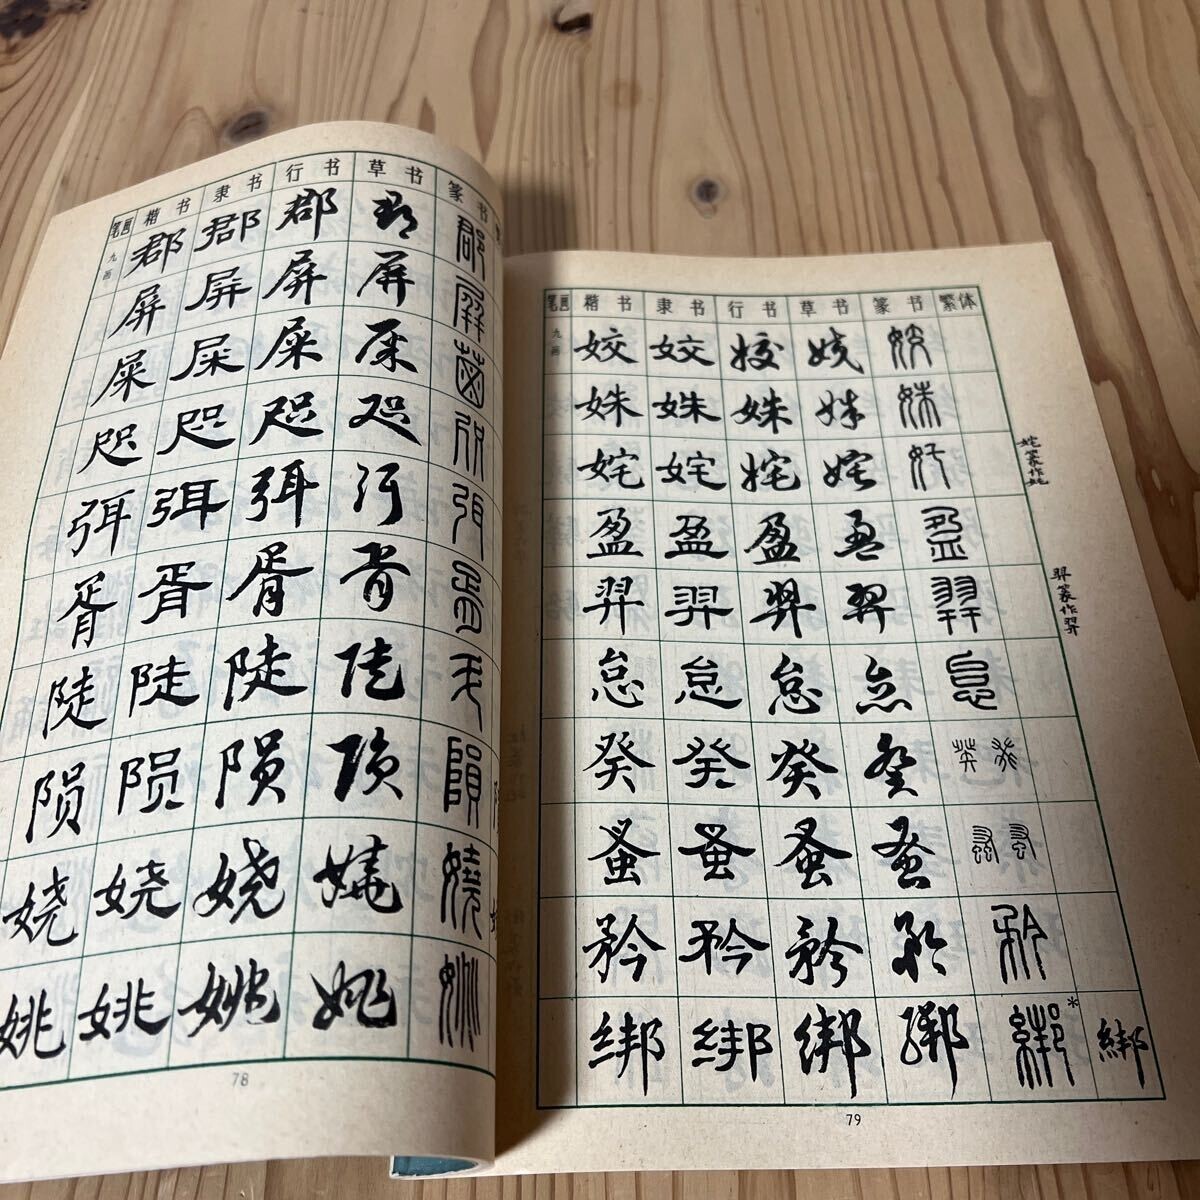 笔画 楷书 隶书 行书 草书 篆书
九画 郡 郡 郡 郡 郡
屏 屏 屏 屏 屏
屎 屎 屎 屎
咫 咫 咫 咫 咫
弭 弭 弭 弭 弭
胥 胥 胥 胥
陡 陡 陡 陡
陨 陨 陨 陨 隕
娆 娆 娆 嬈 嬈
姚 姚 姚 姚 姚
78
笔画 楷书 隶书 行书 草书 篆书 繁体
九画 姣 姣 姣 姣 姣
姝 姝 姝 姝 姝
姹 姹 姹 姹 奼
盈 盈 盈 盈 盈
羿 羿 羿 羿 羿
怠 怠 怠 怠 怠
癸 癸 癸 癸 癸 癸
蚤 蚤 蚤 蚤 蚤 蚤
矜 矜 矜 矜 矜
绑 绑 绑 綁 綁* 綁
羿篆作羿
79